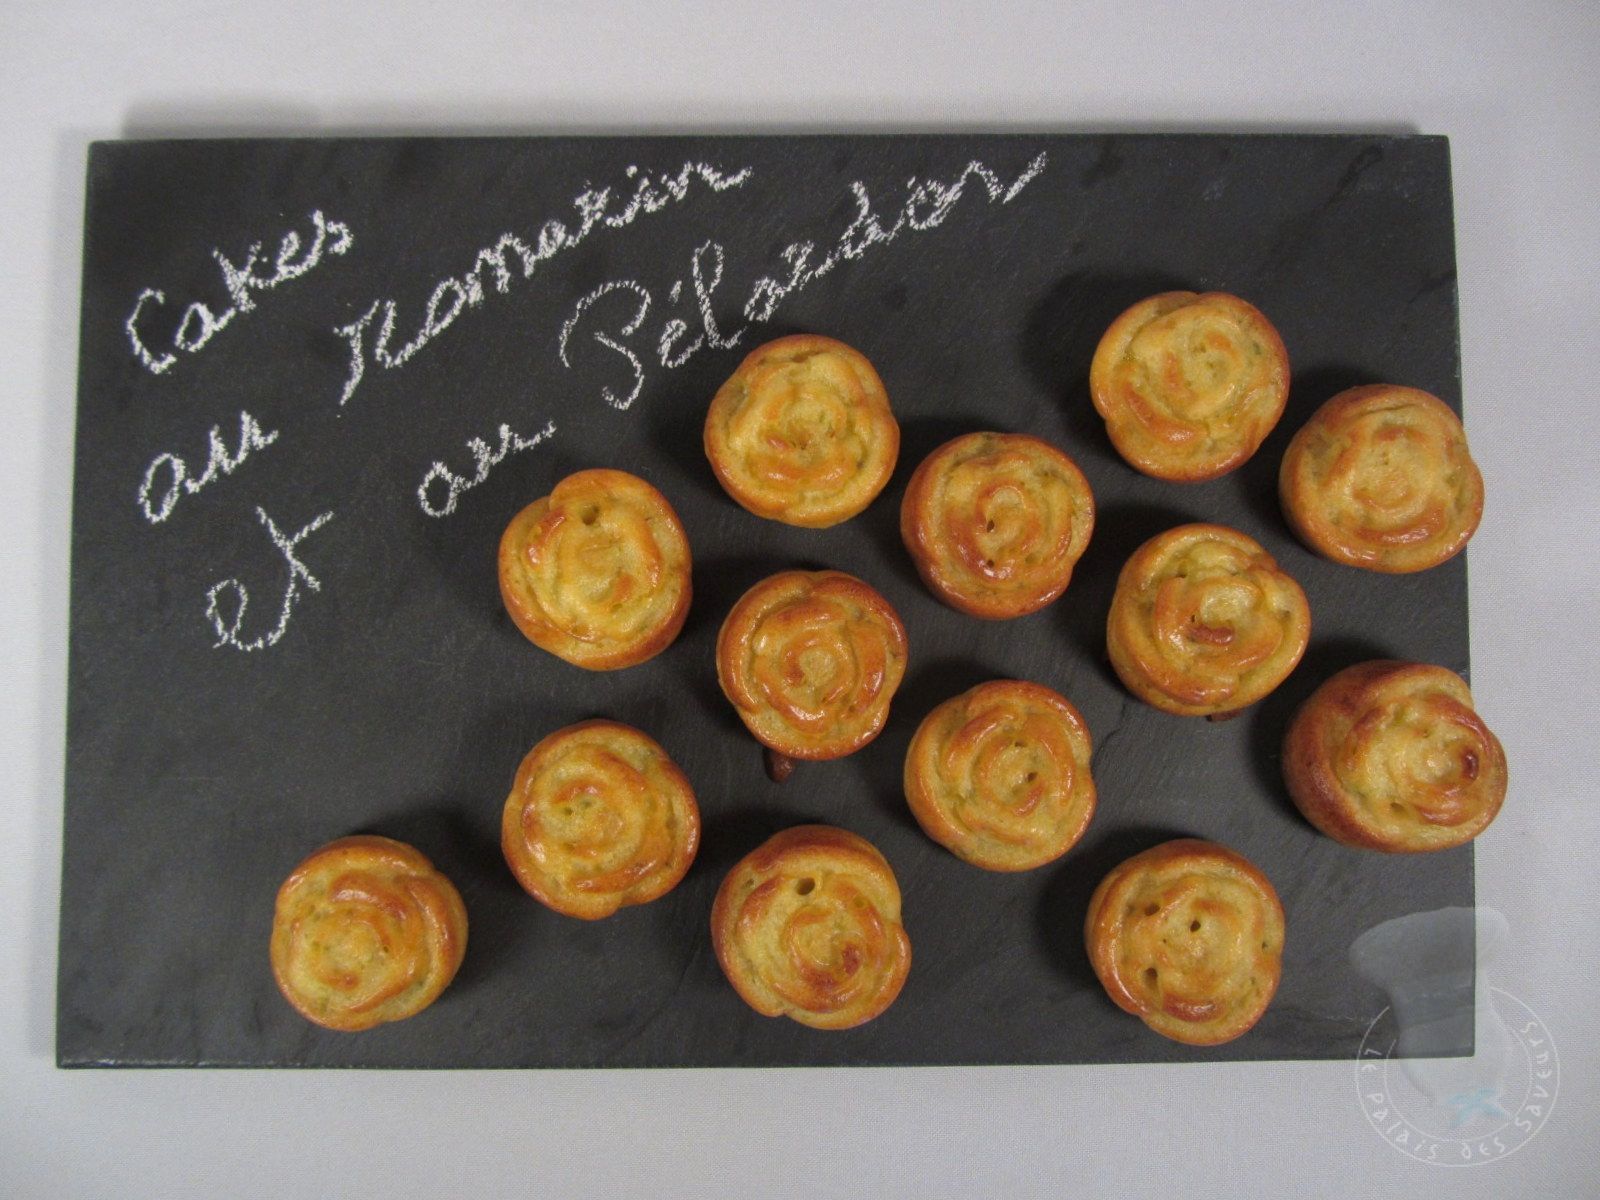 Cakes
au Romarin
et au Pélardon
Le Palais des Saveurs